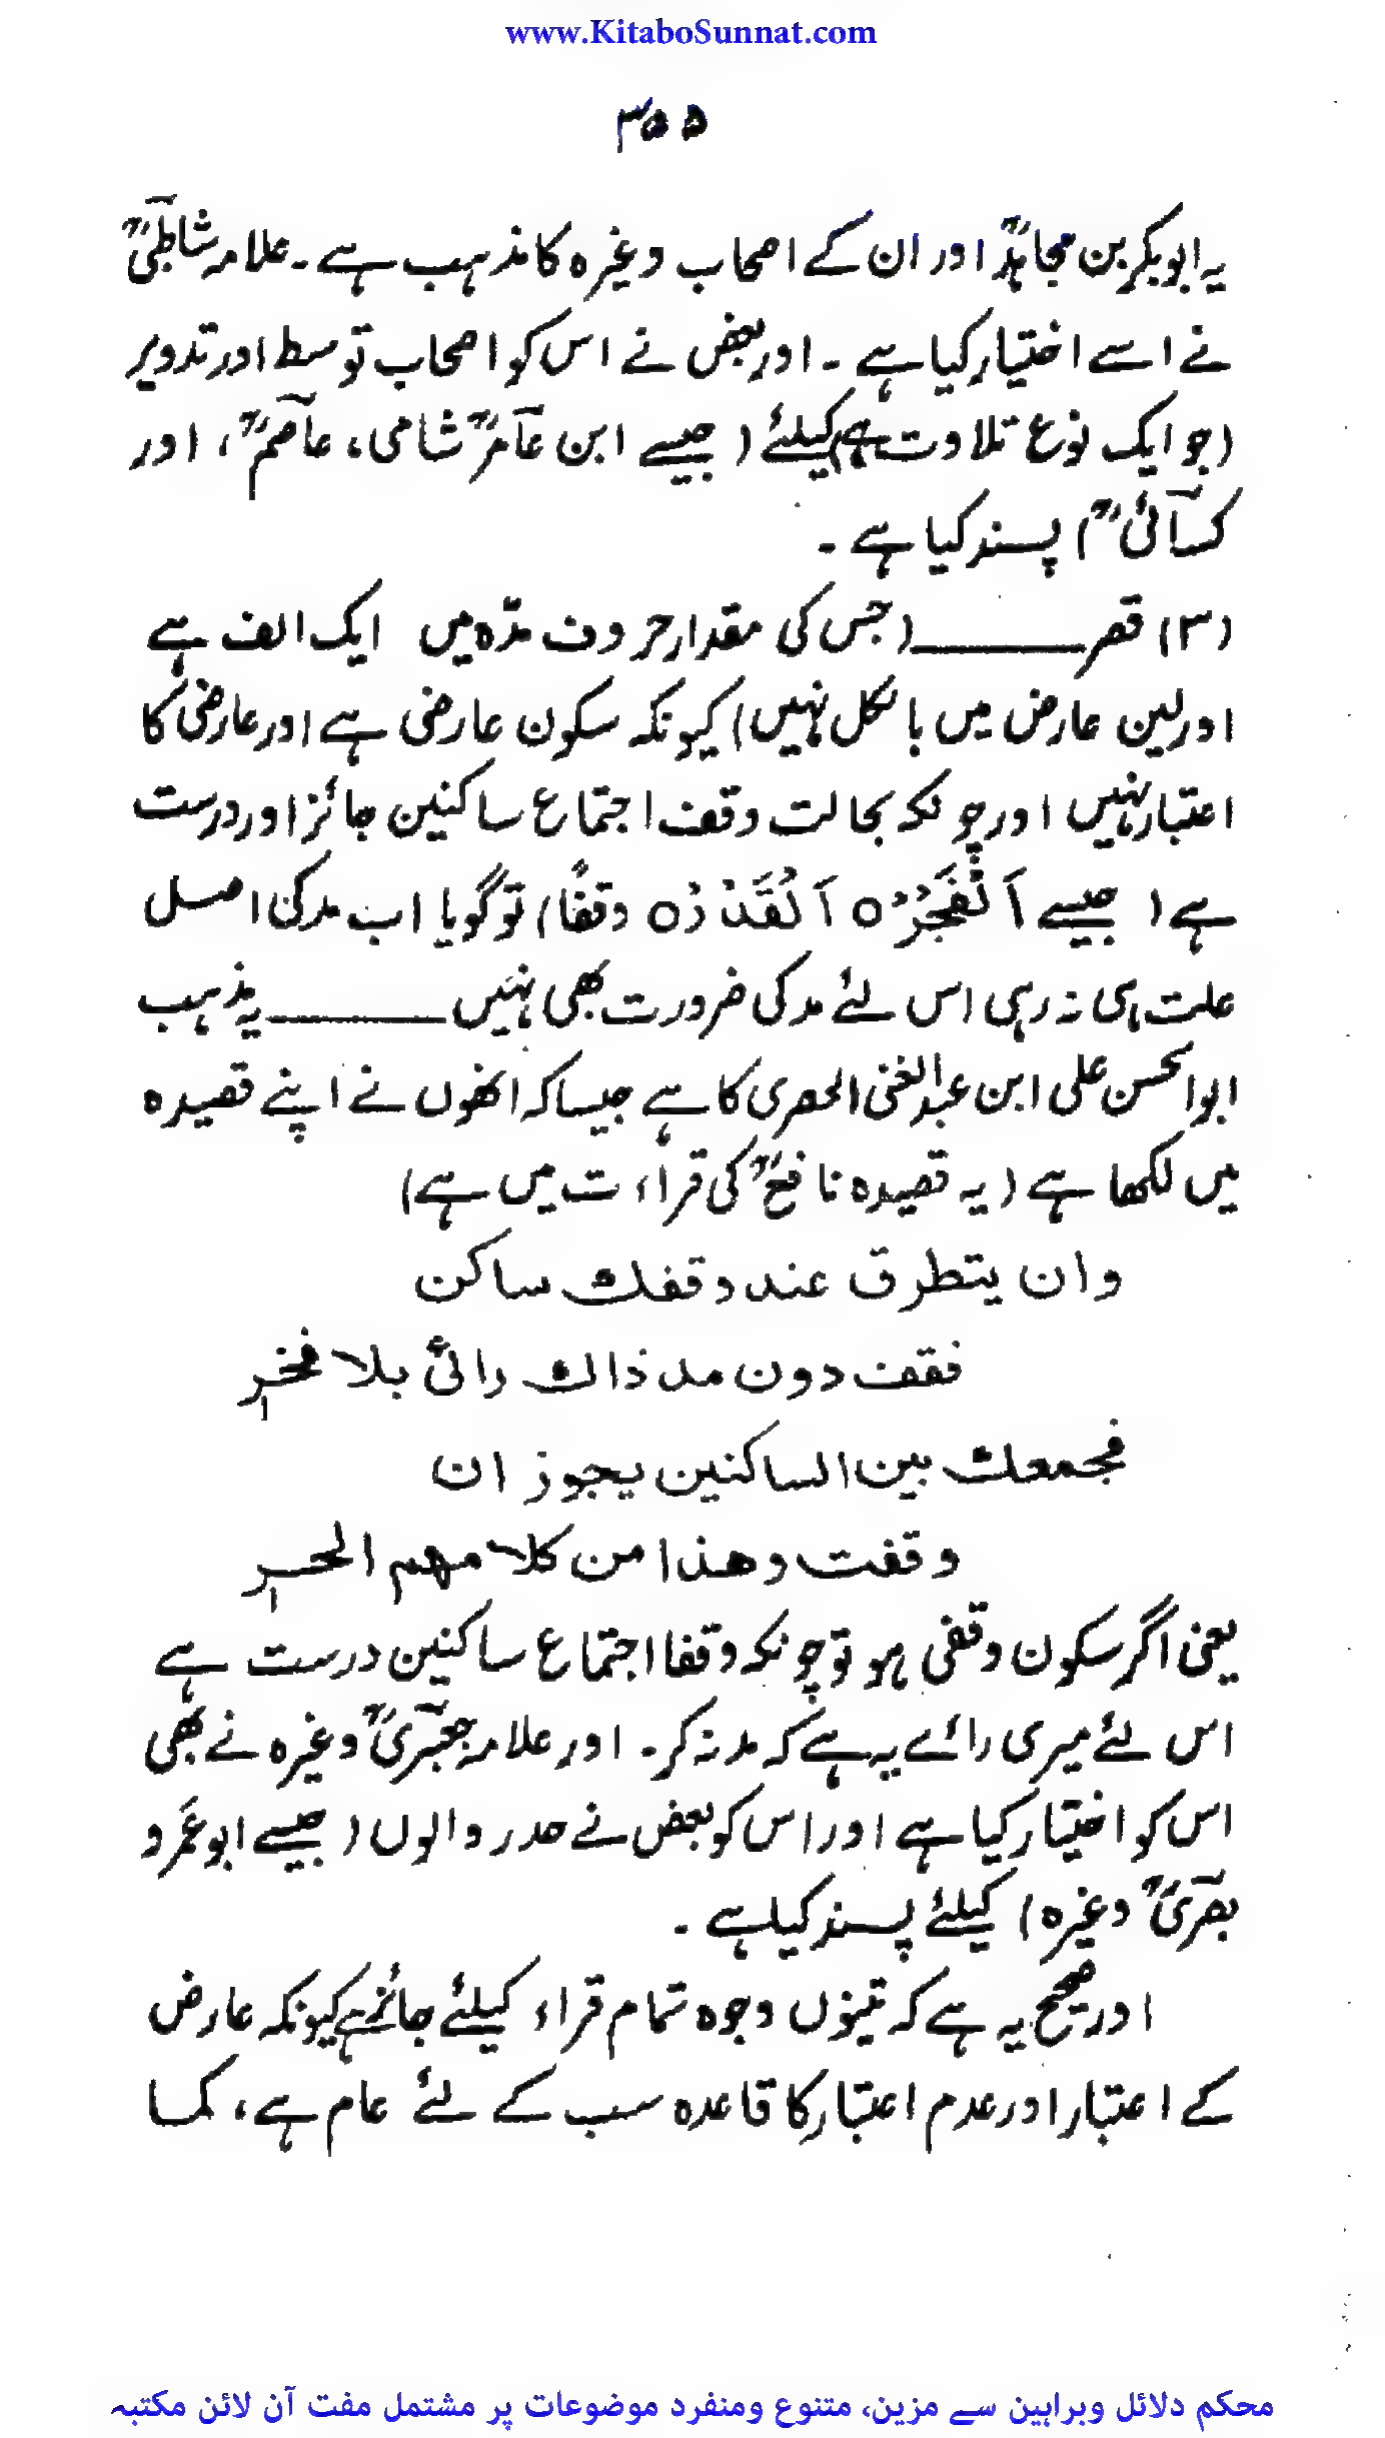 www.KitaboSunnat.com
۳۵۵
یہ ابوبکر بن مجاہدؒ اور ان کے اصحاب وغیرہ کا مذہب ہے۔ علامہ شاطبیؒ
نے اسے اختیار کیا ہے ۔ اور بعض نے اس کو اصحاب توسط اور تدویر
(جو ایک نوع تلاوت ہے) کیلئے ( جیسے ابن عامرؒ شامی، عاصمؒ ، اور
کسائیؒ ) پسند کیا ہے ۔
(۳) قصر ــــــــــ (جس کی مقدار حروف مدّہ میں ایک الف ہے
اور لین عارض میں بالکل نہیں) کیونکہ سکون عارضی ہے اور عارضی کا
اعتبار نہیں اور چونکہ بحالت وقف اجتماع ساکنین جائز اور درست
ہے ( جیسے اَلْفَجْرْ ہ اَلْقَدْرْ ہ وقفًا) تو گویا اب مد کی اصل
علت ہی نہ رہی اس لئے مد کی ضرورت بھی نہیں ــــــــــ یہ مذہب
ابوالحسن علی ابن عبدالغنی الحصری کا ہے جیسا کہ انھوں نے اپنے قصیدہ
میں لکھا ہے ( یہ قصیدہ نافعؒ کی قراءت میں ہے)
وان یتطرق عند وقفك ساکن
فقف دون مد ذاك رائی بلا فخرِ
فجمعك بین الساکنین یجوز ان
وقفت وھذا من کلامھم الحرِ
یعنی اگر سکون وقفی ہو تو چونکہ وقفا اجتماع ساکنین درست ہے
اس لئے میری رائے یہ ہے کہ مد نہ کر۔ اور علامہ جعبریؒ وغیرہ نے بھی
اس کو اختیار کیا ہے اور اس کو بعض نے حدر والوں ( جیسے ابو عَمرو
بصریؒ وغیرہ ) کیلئے پسند کیا ہے ۔
اور صحیح یہ ہے کہ تینوں وجوہ تمام قراء کیلئے جائز ہے کیونکہ عارض
کے اعتبار اور عدم اعتبار کا قاعدہ سب کے لئے عام ہے، کما
محکم دلائل وبراہین سے مزین، متنوع ومنفرد موضوعات پر مشتمل مفت آن لائن مکتبہ